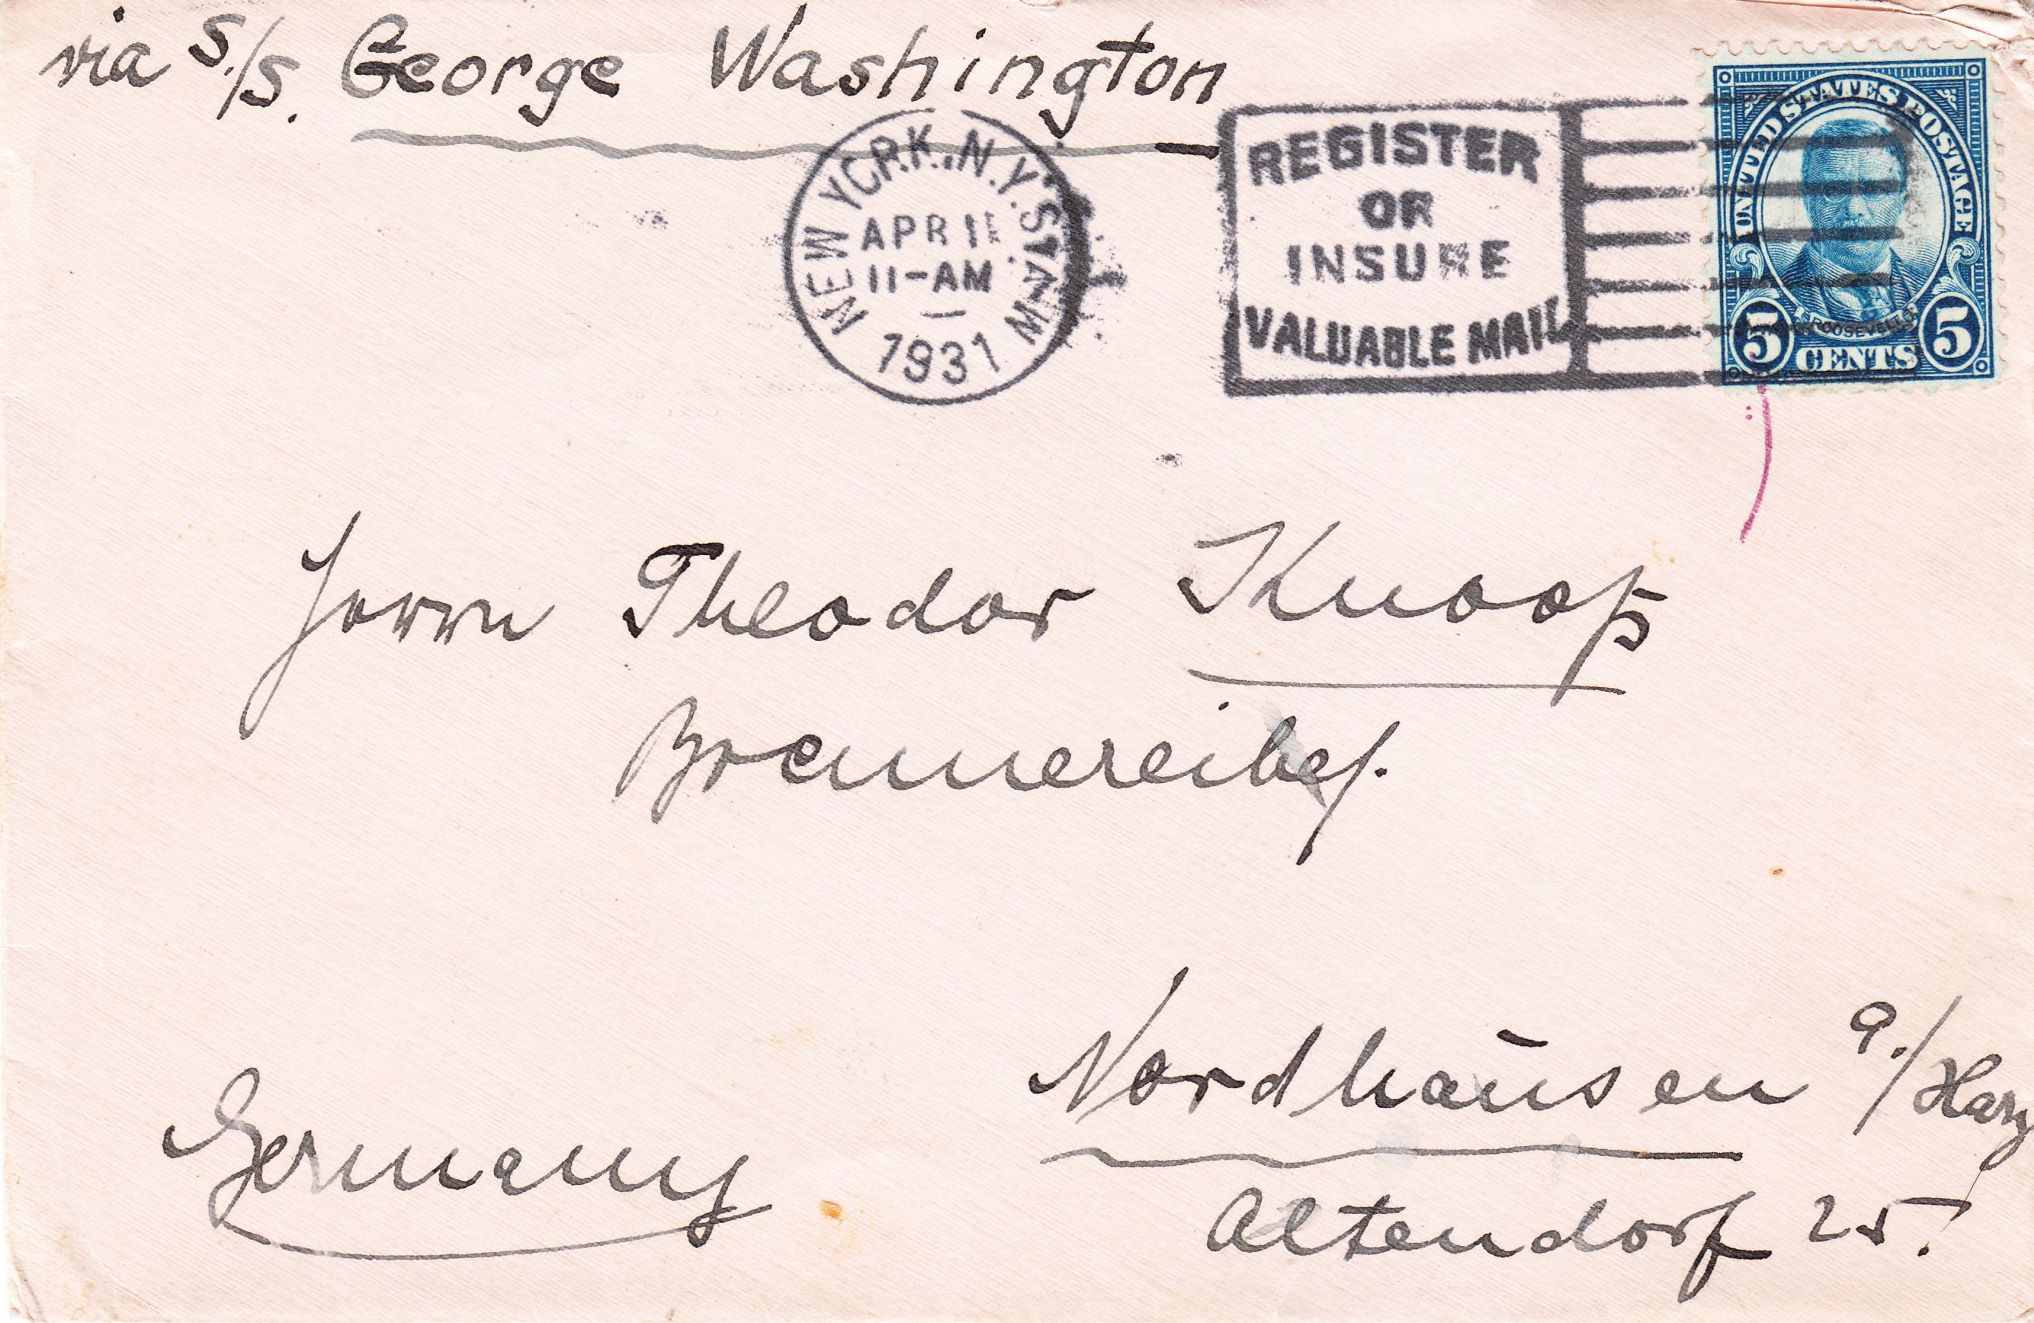 via S./S. George Washington
NEW YORK, N.Y. STA. W
APR 1
11-AM
1931
REGISTER
OR
INSURE
VALUABLE MAIL
UNITED STATES POSTAGE
ROOSEVELT
5 CENTS 5
Herrn Theodor Knoop
Brennereibes.
Nordhausen a./Harz
Germany
Altendorf 25.